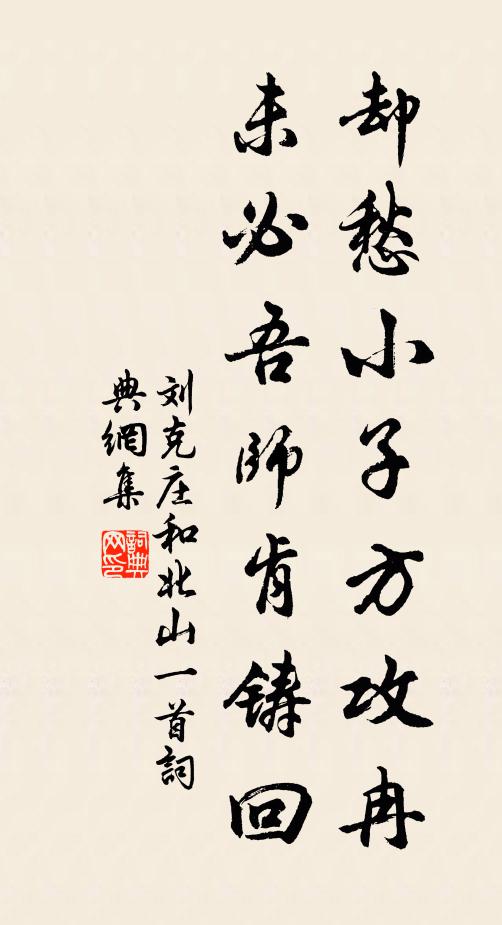 却愁小子方攻冉
未必吾師肯铸回
刘克庄和北山一首詞
典網集
詞典网印